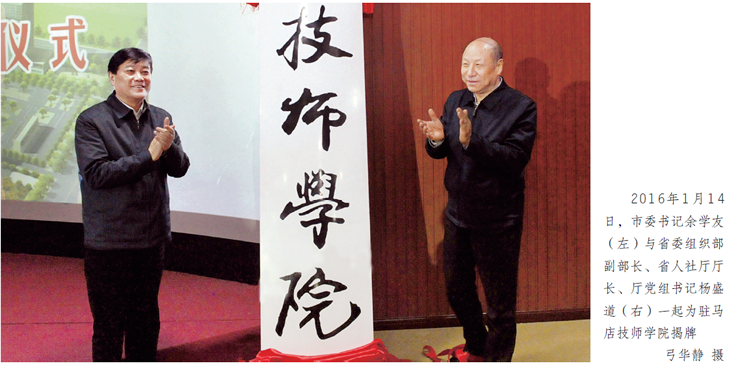 仪式
技
师
學
院
2016年1月14
日，市委书记余学友
（左）与省委组织部
副部长、省人社厅厅
长、厅党组书记杨盛
道（右）一起为驻马
店技师学院揭牌
弓华静 摄